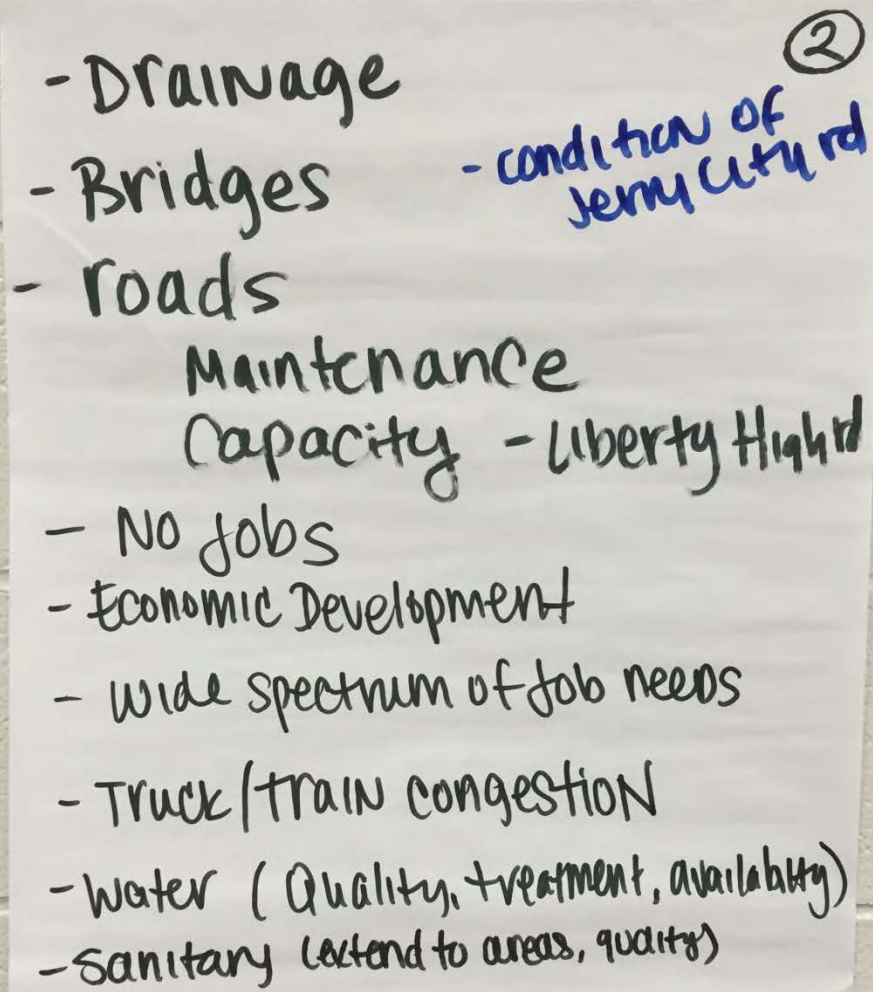 ②
- Drainage
- Bridges
- condition of
Jerry City rd
- roads
Maintenance
Capacity - Liberty High rd
- No Jobs
- Economic Development
- wide spectrum of Job needs
- Truck/train congestion
- water (Quality, treatment, availability)
- Sanitary (extend to areas, quality)